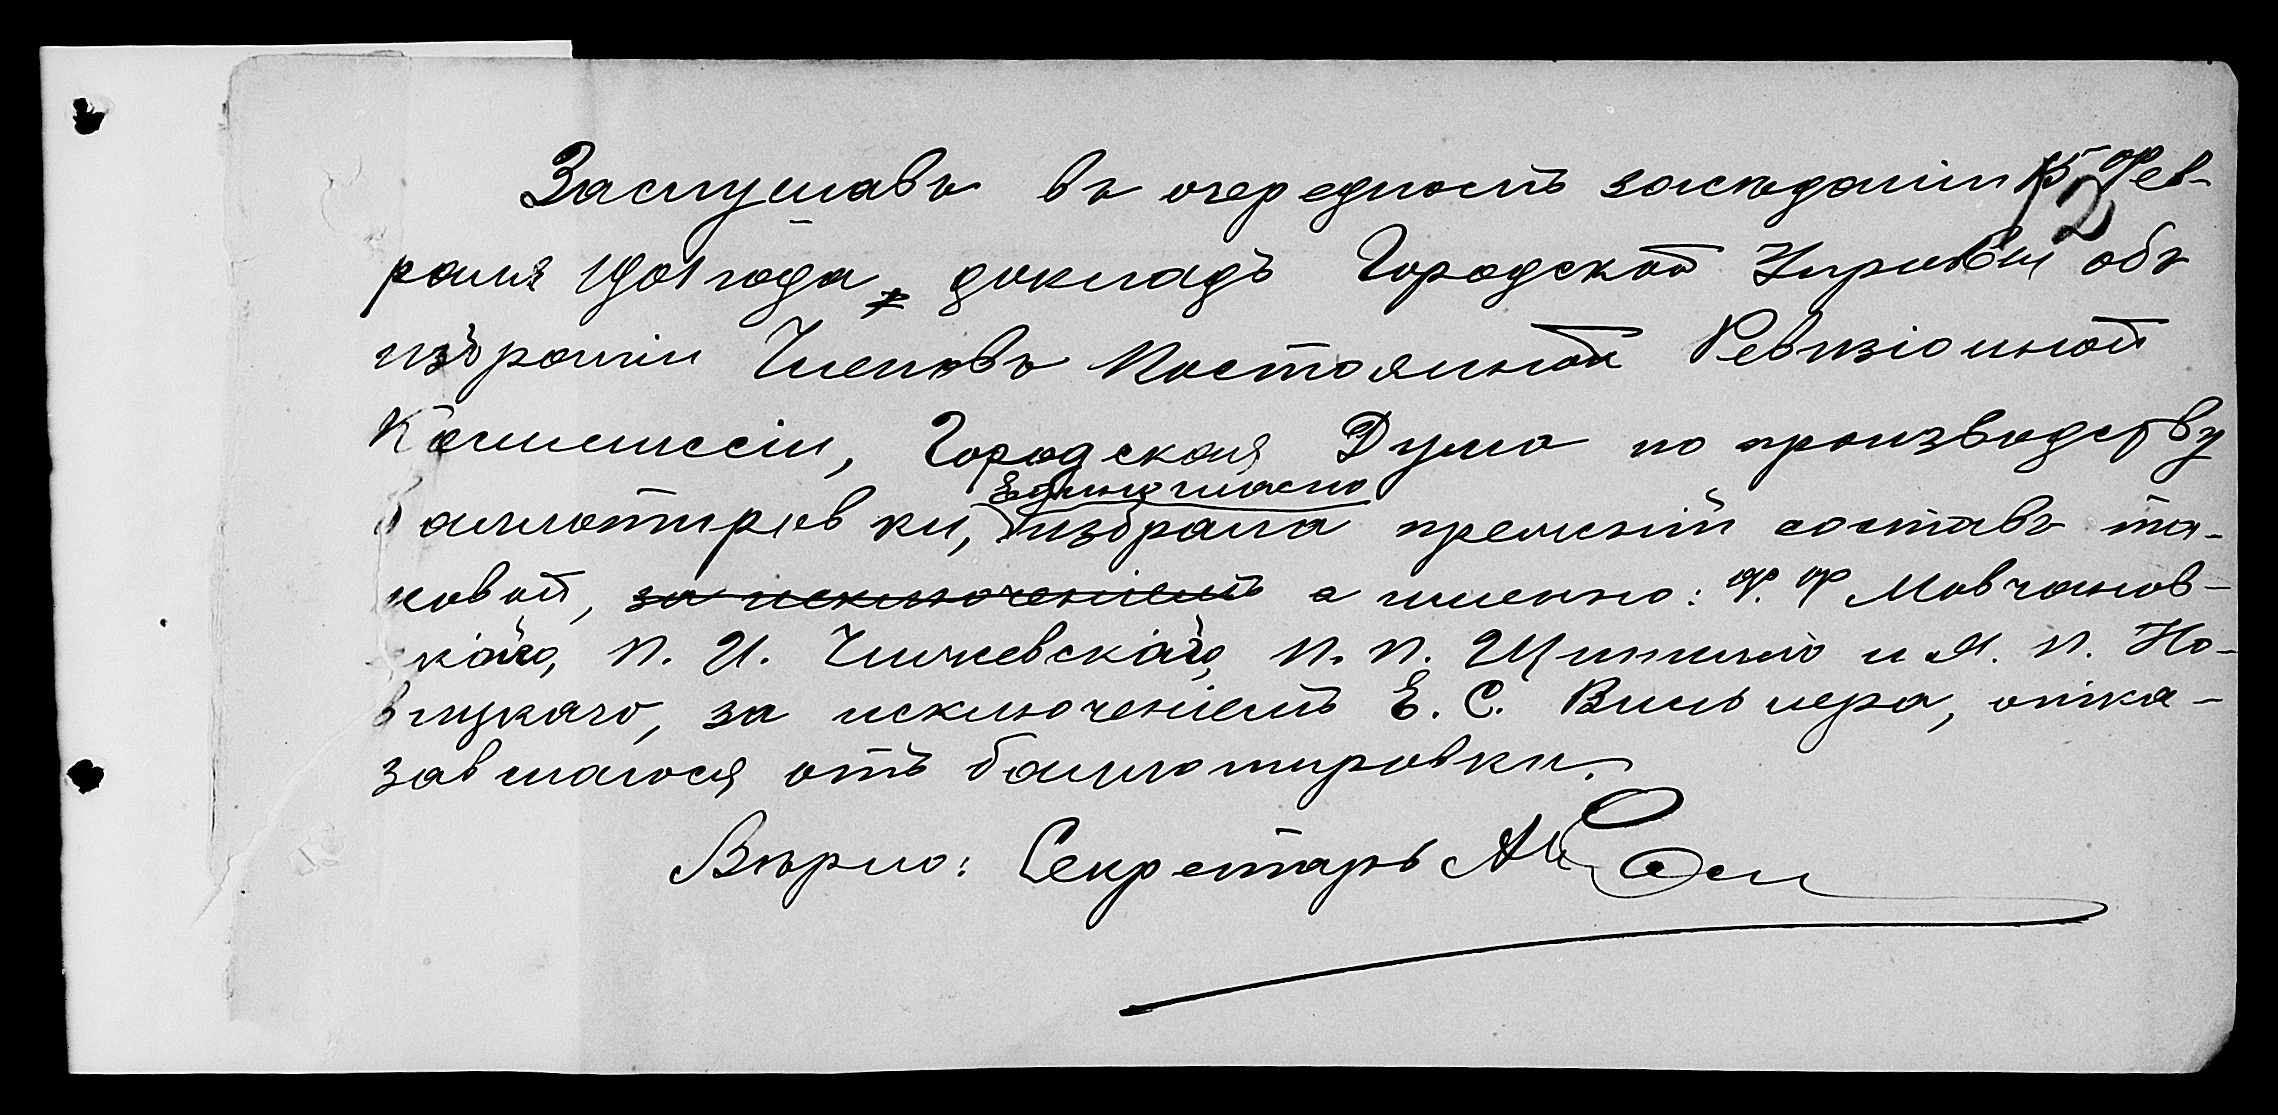 Заслушавъ въ очередномъ засѣданіи 15 Фев-
12
раля 1901 года, докладъ Городской Управы объ
избраніи Членовъ Постоянной Ревизіонной
Коммиссіи, Городская Дума по производству
Единогласно
баллотировки, избрала прежній составъ та-
ковой, за исключеніемъ а именно: Ф. Ф. Мовчанов-
скаго, П. И. Чижевскаго, П. П. Щитило и Я. П. Но-
вицкаго, за исключеніемъ Е. С. Вильмера, отка-
завшагося отъ баллотировки.
Вѣрно: Секретарь